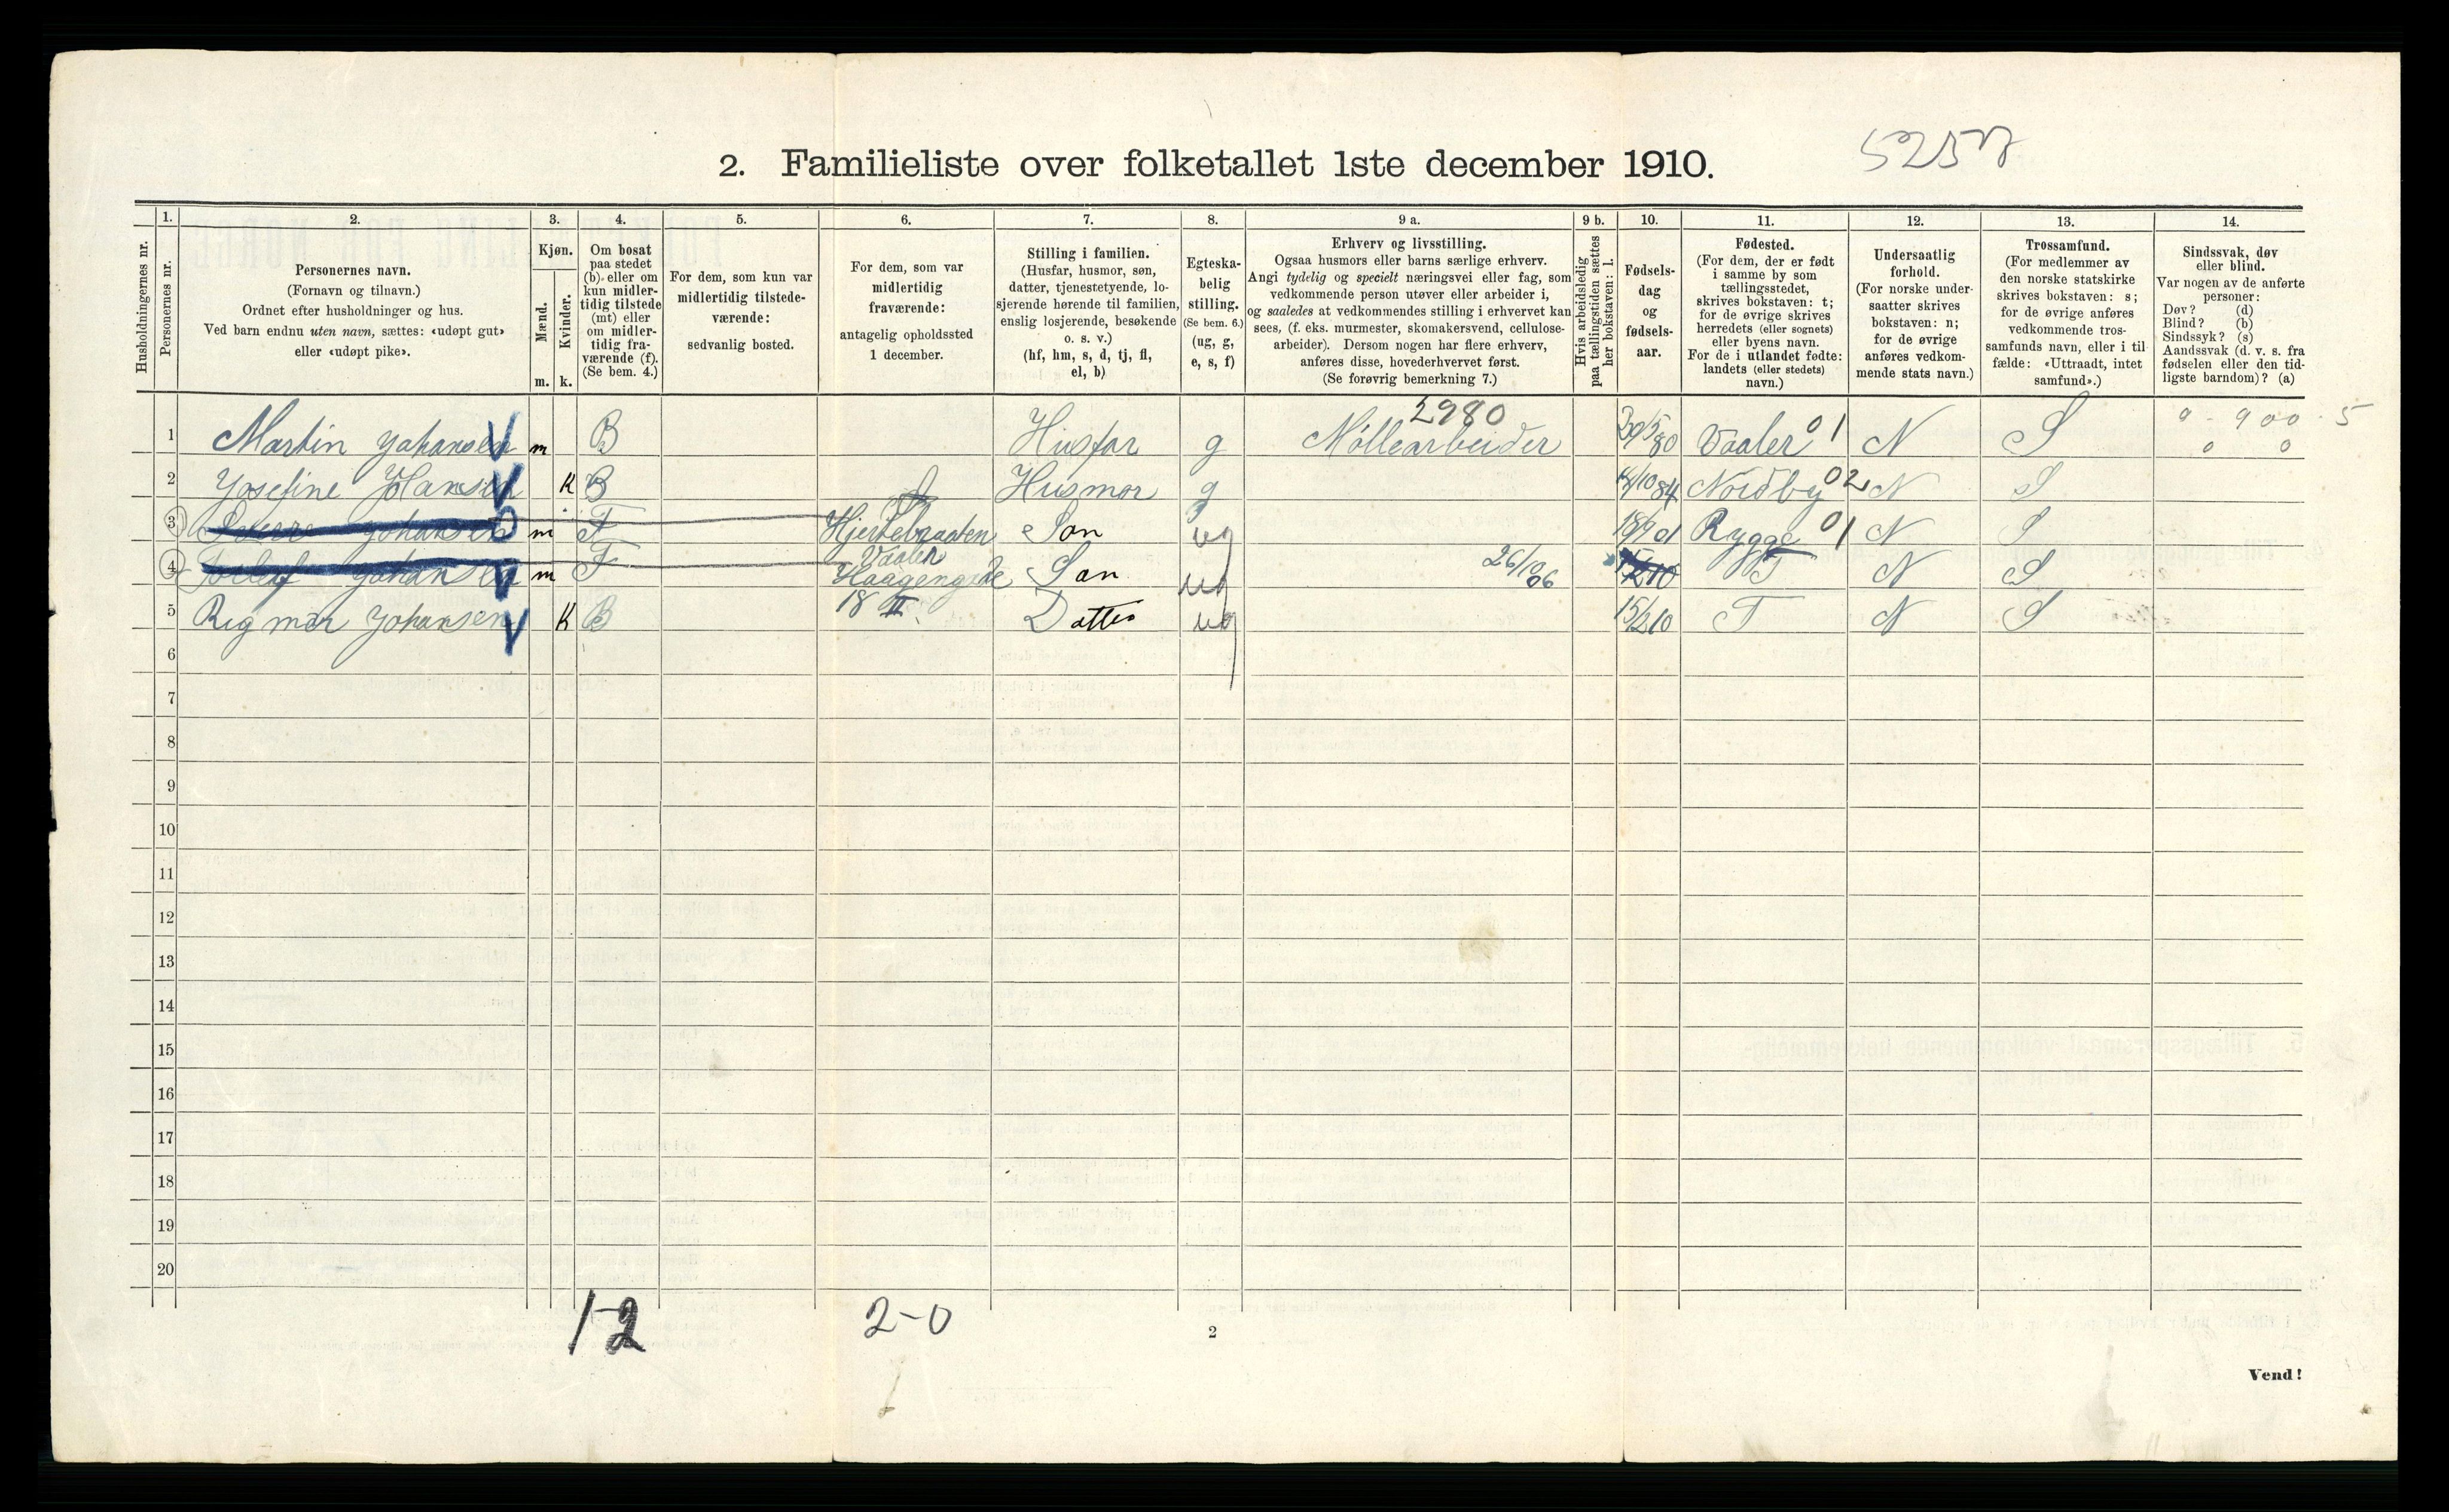 5252
2. Familieliste over folketallet 1ste december 1910.
Husholdningernes nr.
1. Personernes nr.
2. Personernes navn.
(Fornavn og tilnavn.)
Ordnet efter husholdninger og hus.
Ved barn endnu uten navn, sættes: «udøpt gut»
eller «udøpt pike».
3. Kjøn.
Mænd. m.
Kvinder. k.
4. Om bosat
paa stedet
(b) eller om
kun midler-
tidig tilstede
(mt) eller
om midler-
tidig fra-
værende (f).
(Se bem. 4.)
5. For dem, som kun var
midlertidig tilstede-
værende:
sedvanlig bosted.
6. For dem, som var
midlertidig
fraværende:
antagelig opholdssted
1 december.
7. Stilling i familien.
(Husfar, husmor, søn,
datter, tjenestetyende, lo-
sjerende hørende til familien,
enslig losjerende, besøkende
o. s. v.)
(hf, hm, s, d, tj, fl,
el, b)
8. Egteska-
belig
stilling.
(Se bem. 6.)
(ug, g,
e, s, f)
9 a. Erhverv og livsstilling.
Ogsaa husmors eller barns særlige erhverv.
Angi tydelig og specielt næringsvei eller fag, som
vedkommende person utøver eller arbeider i,
og saaledes at vedkommendes stilling i erhvervet kan
sees, (f. eks. murmester, skomakersvend, cellulose-
arbeider). Dersom nogen har flere erhverv,
anføres disse, hovederhvervet først.
(Se forøvrig bemerkning 7.)
9 b. Hvis arbeidsledig
paa tællingstiden sættes
her bokstaven: l.
10. Fødsels-
dag
og
fødsels-
aar.
11. Fødested.
(For dem, der er født
i samme by som
tællingsstedet,
skrives bokstaven: t;
for de øvrige skrives
herredets (eller sognets)
eller byens navn.
For de i utlandet fødte:
landets (eller stedets)
navn.)
12. Undersaatlig
forhold.
(For norske under-
saatter skrives
bokstaven: n;
for de øvrige
anføres vedkom-
mende stats navn.)
13. Trossamfund.
(For medlemmer av
den norske statskirke
skrives bokstaven: s;
for de øvrige anføres
vedkommende tros-
samfunds navn, eller i til-
fælde: «Uttraadt, intet
samfund».)
14. Sindssvak, døv
eller blind.
Var nogen av de anførte
personer:
Døv? (d)
Blind? (b)
Sindssyk? (s)
Aandssvak (d. v. s. fra
fødselen eller den tid-
ligste barndom)? (a)
2980 0-900-5
1 Martin Johansen m B Husfar g Møllearbeider 30/5 80 Vaaler 01 N S 0 0
2 Josefine Johansen K B Husmor g 14/10 84 Nordby 02 N S
3 Sverre Johansen m F Hjertebraaten Vaaler Søn ug 18/9 01 Rygge 01 N S
4 Johansen m F Haagengade 18 II Søn ug 26/10 06 T N S
5 Rigmor Johansen K B Datter ug 15/2 10 T N S
6
7
8
9
10
11
12
13
14
15
16
17
18
19
20
1-2 2-0
2
Vend!